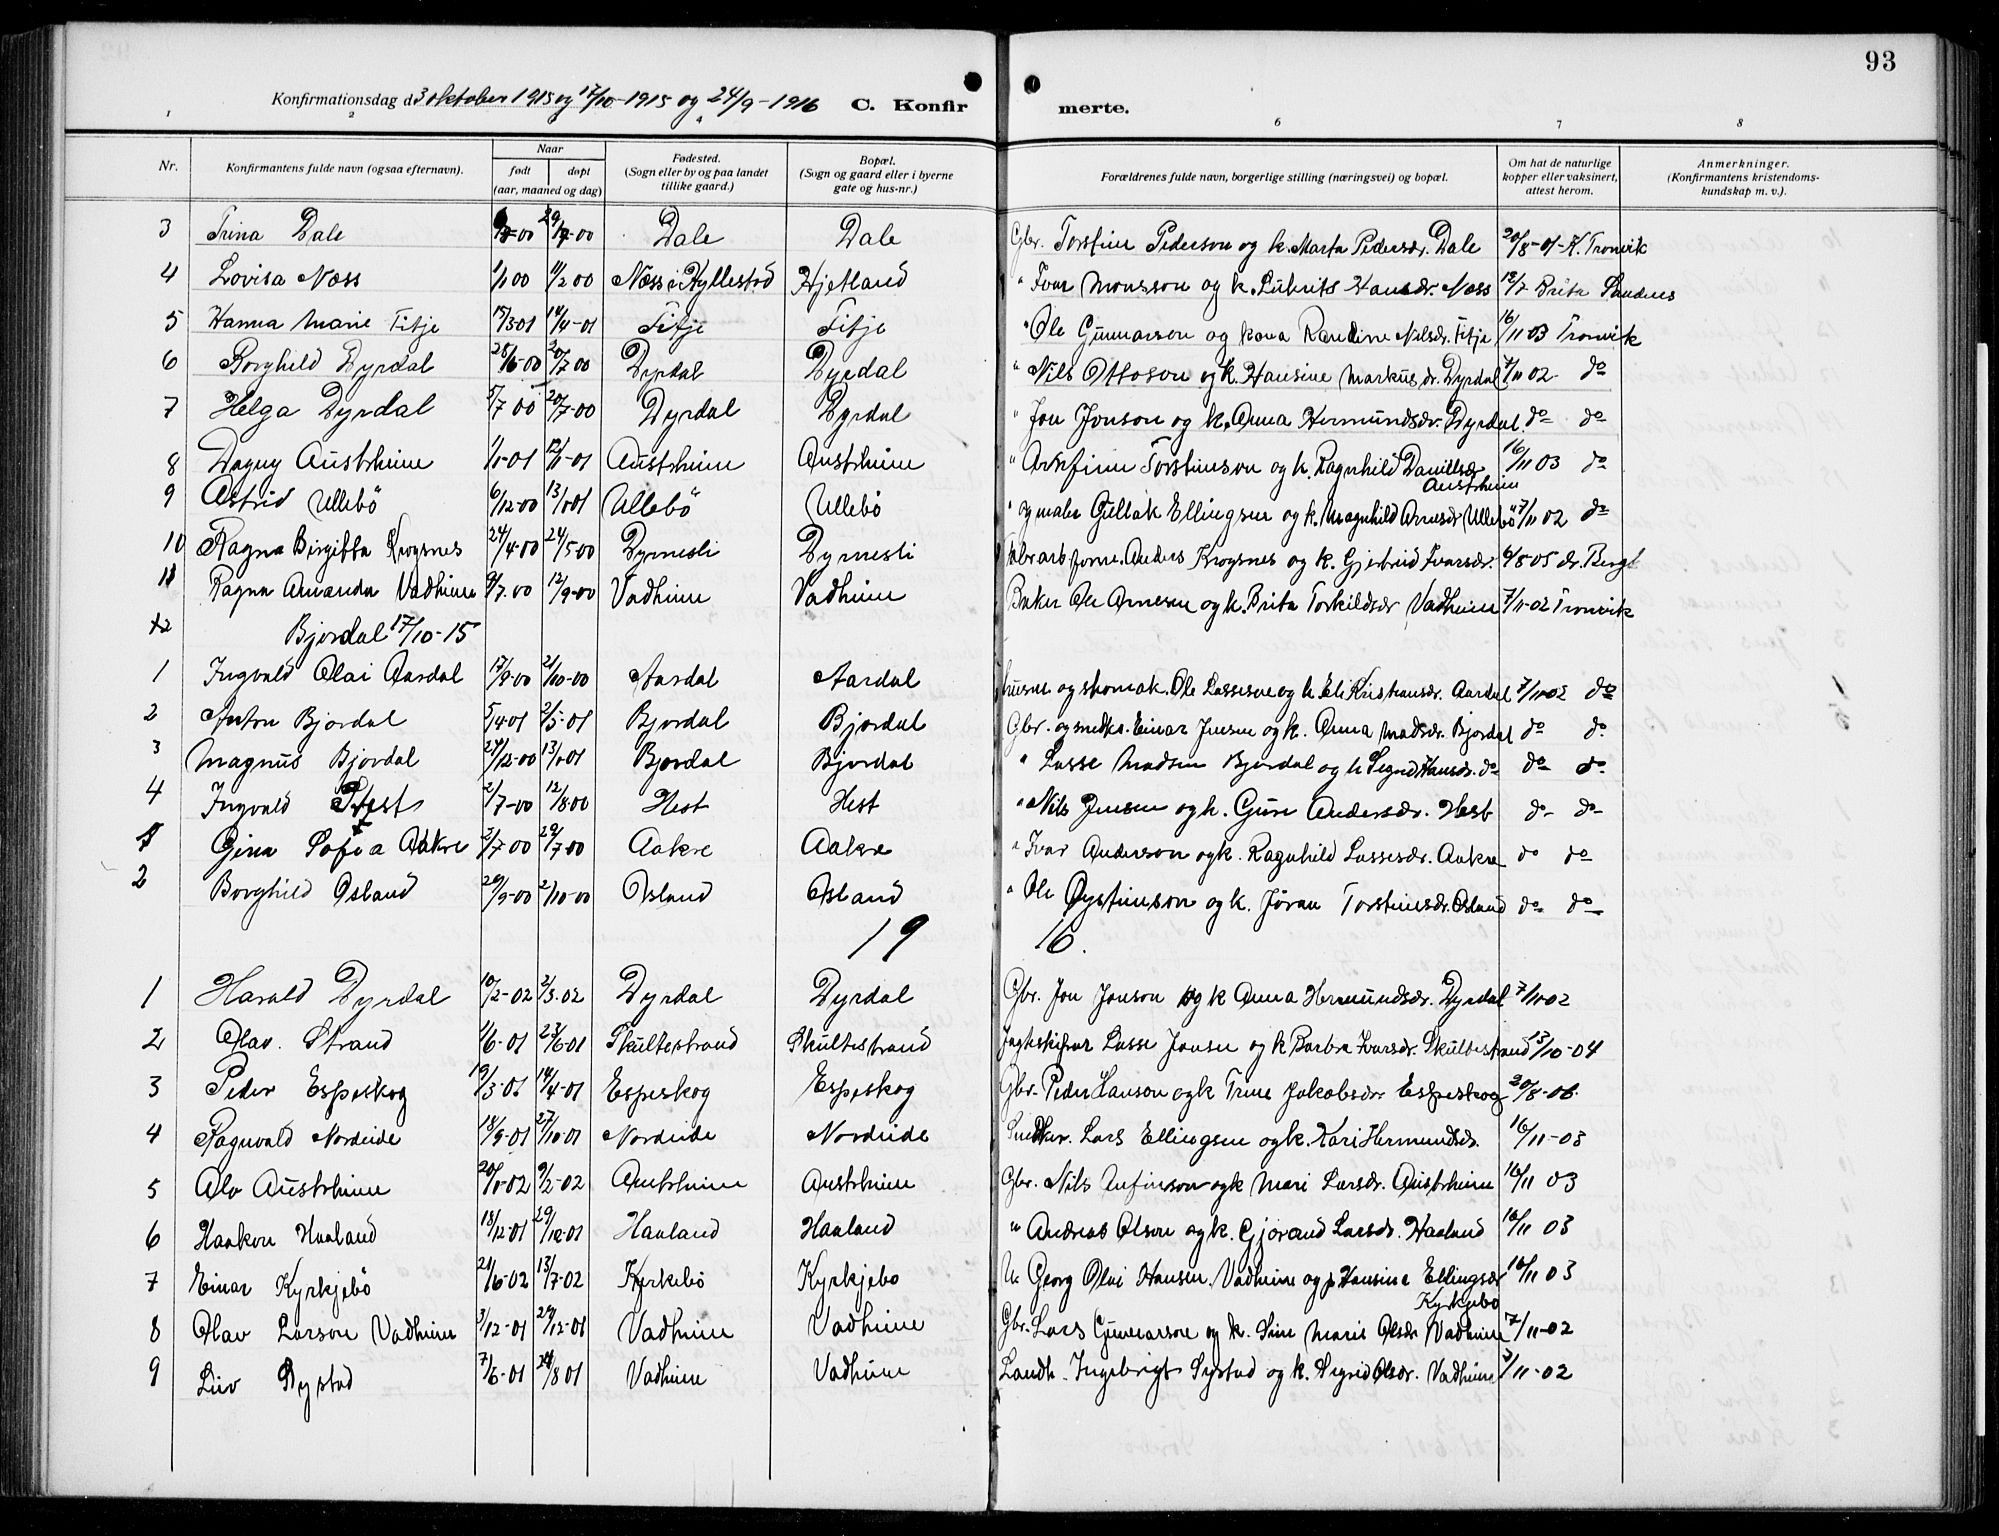 93
Konfirmationsdag d 3 oktober 1915 og 17/10-1915 og 24/9-1916 C. Konfirmerte.
1 2 4 6 7 8
Nr. Konfirmantens fulde navn (ogsaa efternavn). Naar født døpt (aar, maaned og dag) Fødested. (Sogn eller by og paa landet tillike gaard.) Bopæl. (Sogn og gaard eller i byerne gate og hus-nr.) Forældrenes fulde navn, borgerlige stilling (næringsvei) og bopæl. Om hat de naturlige kopper eller vaksinert, attest herom. Anmerkninger. (Konfirmantens kristendomskundskap m. v.).
3 Trina Dale Dale Dale Gbr. Torstein Pederson og k. Marta Pedersdr. Dale 20/8-01 K. Tronvik
4 Lovisa Næss 1/1 00 11/2 00 Næss i Hyllestad Hjetland " Ivar Monsson og k. Hansdr. Næss 12/7 Brita Sandnes
5 Hanna Marie Fitje 15/3 01 14/4-01 Fitje Fitje " Ole Gunnarson og kona Randine Nilsdr. Fitje 16/11 03 Tronvik
6 Borghild Dyrdal 28/6-00 20/7-00 Dyrdal Dyrdal " Nils Ottoson og k. Hansine Markusdr. Dyrdal 7/11 02 do
7 Helga Dyrdal 5/7 00 20/7-00 Dyrdal Dyrdal " Jon Jonson og k. Anna Hermundsdr. Dyrdal. do do
8 Dagny Austrheim 1/10-01 12/11-01 Austrheim Austrheim " Arnfinn Torsteinson og k. Ragnhild Danielsdr. Austrheim 16/11 03 do
9 Astrid Ullebö 6/12-00 13/1 01 Ullebö Ullebö " og maler Gullak Ellingsen og k. Magnhild Arnesdr Ullebö 7/11 02 do
10 Ragna Birgitta Krogsnes 24/4-00 24/5-00 Dyrnesli Dyrnesli forne. Anders Krogsnes og k. Gjertrud Ivarsdr. 6/8 05 dr. Berg
11 Ragna Amanda Vadheim 9/7-00 12/9-00 Vadheim Vadheim Baker Ole Arnesen og k. Brita Torkildsdr Vadheim 7/11-02 Tronvik
12 Bjordal 17/10-15
1 Ingvald Olai Aardal 17/9-00 21/10-00 Aardal Aardal Husm og skomak. Ole Lassesen og k. Eli Kristiansdr. Aardal 7/11 02 do
2 Anton Bjordal 5/4 01 2/5-01 Bjordal Bjordal Gbr. og snedk. Einar Jensen og k. Anna Madsdr. Bjordal do do
3 Magnus Bjordal 27/12-00 13/1-01 Bjordal Bjordal " Lasse Madsen Bjordal og k Sigrid Hansdr. do do do
4 Ingvald Hest 2/7-00 12/8-00 Hest Hest " Nils Jensen og k. Guri Andersdr. Hest do do
1 Gina Sofia Aakre 2/7-00 29/7-00 Aakre Aakre " Ivar Anderson og k. Ragnhild Lassesdr. Aakre do do
2 Borghild Osland 20/9-00 2/10-00 Osland Osland " Ole Øysteinson og k. Jöran Torsteinsdr. Osland do do
19 16.
1 Harald Dyrdal 10/2-02 2/3-02 Dyrdal Dyrdal Gbr. Jon Jonson og k Anna Hermundsdr. Dyrdal 7/11 02
2 Olav. Strand 1/6-01 23/6-01 Skultestrand Skultestrand Jagteskipar Lasse Jonsen og k Barbra Ivarsdr. Skultestrand 13/10-04
3 Peder Espeskog 19/3-01 14/4-01 Espeskog Espeskog Gbr. Peder Hanson og k Trine Jakobsdr. Espeskog 20/8-06.
4 Ragnvald Nordeide 18/9-01 27/10-01 Nordeide Nordeide Snedker. Lars Ellingsen og k. Kari Hermundsdr. 16/11-03
5 Alv Austrheim 20/1-02 9/2-02 Austrheim Austrheim Gbr. Nils Anfinson og k Mari Larsdr. Austrheim 16/11 03
6 Haakon Haaland 18/12-01 29/12-01 Haaland Haaland " Andreas Olson og k. Gjörand Larsdr. Haaland 16/11 03
7 Einar Kyrkjebö 21/6-02 13/7-02 Kyrkebö Kyrkjebo U. Georg Olai Hansen. Vadheim og p Hansina Ellingsdr Kyrkjebo 16/11 03
8 Olav Larson Vadheim 3/12-01 29/12-01 Vadheim Vadheim Gbr. Lars Gunnarson og k. Sine Marie Olsdr Vadheim 7/11-02
9 Liv Systad 7/6-01 24/8 01 Vadheim Vadheim Landh. Ingebrigt Systad og k. Sigrid Olsdr. Vadheim 7/11-02